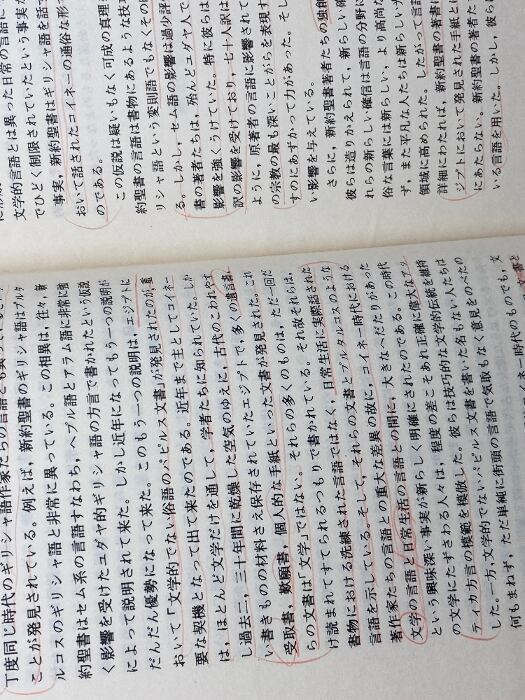 文学的言語とは異った日常の言語に
でひどく制限されていたという事実が
事実、新約聖書はギリシャ語を話す
おいて話されたコイネーの通俗形
のである。
この仮説は疑いもなく可成の真理
約聖書の言語は書物にあるような技
リシャ語という変則語でもなくその
る。しかし、セム語の影響は過少評
書の著者たちは、殆んどユダヤ人で
影響を強くうけていた。特に彼らは
訳の影響を受けており、七十人訳は
ように、原著者の言語に影響されて
の宗教の最も深いことがらを表現す
すのにあずかって力があった。そし
い影響を与えている。
さらに、新約聖書著者たちの独創
彼らは造りかえられて、新らしい確
れらの新らしい確信は言語の分野に
俗な言葉には新らしい、より高尚な
ず、また平凡な人たちは新らしい力
領域に高められた。したがって言語
詳細にわたれば、新約聖書の著書に
ジプトにおいて発見された手紙とは
にあたらない。新約聖書の著者た
いる言語を用いた。しかし、彼ら
丁度同じ時代のギリシャ語作家たちの言語とも異っている
ことが発見されている。例えば、新約聖書のギリシャ語はプルタ
ルコスのギリシャ語と非常に異っている。この相異は、往々、新
約聖書はセム系の言語すなわち、ヘブル語とアラム語に非常に強
く影響を受けたユダヤ的ギリシャ語の方言で書かれたという仮説
によって説明されて来た。しかし近年になってもう一つの説明が
だんだん優勢になって来た。このもう一つの説明は、エジプトに
おいて「文学的でない俗語のパピルス文書」が発見されたのが重
要な契機となって出て来たのである。近年まで主としてコイネー
は、ほとんど文学だけを通して、学者たちに知られていた。しか
し過去二、三十年間に乾燥した空気のゆえに、古代のこわれやす
い書きものの材料さえ保存されていたエジプトで、多くの遺言書、
受取書、歎願書、個人的な手紙といった文書が発見された。これ
らの文書は「文学」ではない。それらの多くのものは、ただ一回だ
け読まれてすてられるつもりで書かれている。それ故それらは、
書物における洗練された言語ではなく、日常生活に実際話された
言語を示している。そして、それらの文書とプルタルコスのような
著作家たちの言語との重大な差異の故に、コイネー時代における
文学の言語と日常生活の言語との間に、大きなへだたりがあった
という興味深い事実が新らしく明確にされたのである。この時代
の文学にたずさわる人々は、程度の差こそあれ正確に偉大なアッ
ティカ方言の模範を模倣した。彼らは技巧的な文学的伝統を維持
した。一方、文学的でないパピルス文書を書いた名もない人たちは
何もまねず、ただ単純に街頭の言語で気取もなく意見をのべたの